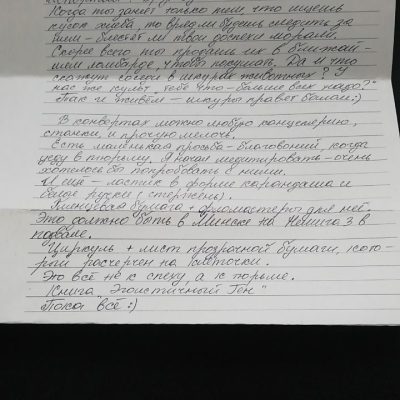 Когда ты занят только тем, что ищешь
кусок хлеба, то вряд ли будешь следить за
тем - блестят ли твои доспехи морали.
Скорее всего ты продашь их в ближай-
шем ломбарде, чтобы покушать. Да и что
скажут соседи в шкурах животных? "У
нас же культ, тебе что - больше всех надо?"
Так и живём - шкуры правят балом :)
В конвертах можно любую канцелярию,
станки и прочую мелочь.
Есть маленькая просьба - благовоний, когда
уеду в тюрьму. Я начал медитировать - очень
хотелось бы попробовать с ними.
И ещё - ластик в форме карандаша и
белой ручки (+ стержень).
Глянцевая бумага + фломастеры для неё.
Это должно быть в Минске на Немига 3 в
подвале.
Циркуль + лист прозрачной бумаги, кото-
рый расчерчен на клеточки.
Это всё не к спеху, а к тюрьме.
Книга "Эгоистичный Ген"
Пока всё :)